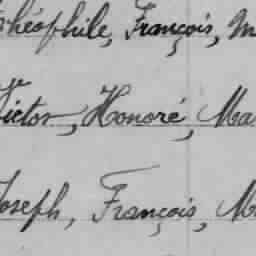 Théophile, François, M
Victor, Honoré, Ma
Joseph, François, M